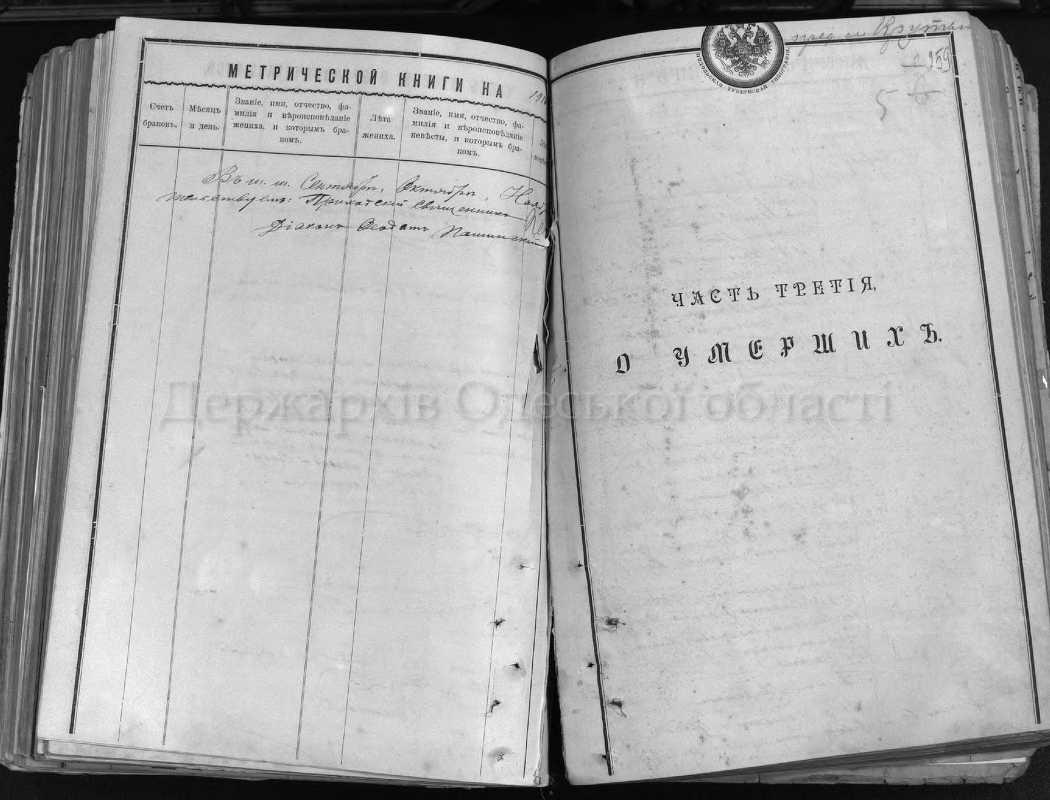 МЕТРИЧЕСКОЙ КНИГИ НА 191
Счетъ браковъ.
Мѣсяцъ и день.
Званіе, имя, отчество, фа-
милія и вѣроисповѣданіе
жениха, и которымъ бра-
комъ.
Лѣта
жениха.
Званіе, имя, отчество, фа-
милія и вѣроисповѣданіе
невѣсты, и которымъ бра-
комъ.
Въ м. м. Сентябрѣ, Октябрѣ,
Приходскій священникъ
Діаконъ Ѳеодотъ
259
5
ЧАСТЬ ТРЕТІЯ,
О УМЕРШИХЪ.
Держархів Одеської області